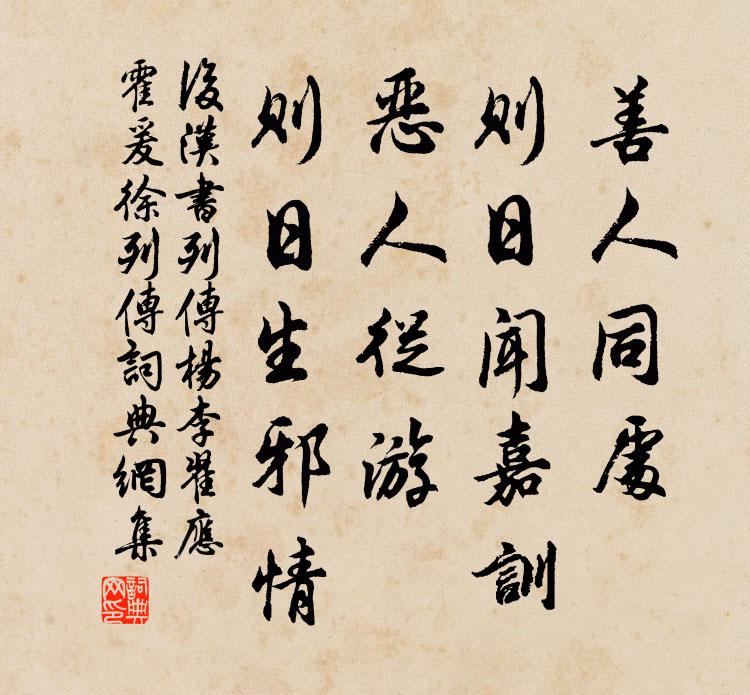 善人同處
則日聞嘉訓
惡人從游
則日生邪情
後漢書列傳楊李翟應
霍爰徐列傳詞典網集
詞典
网印